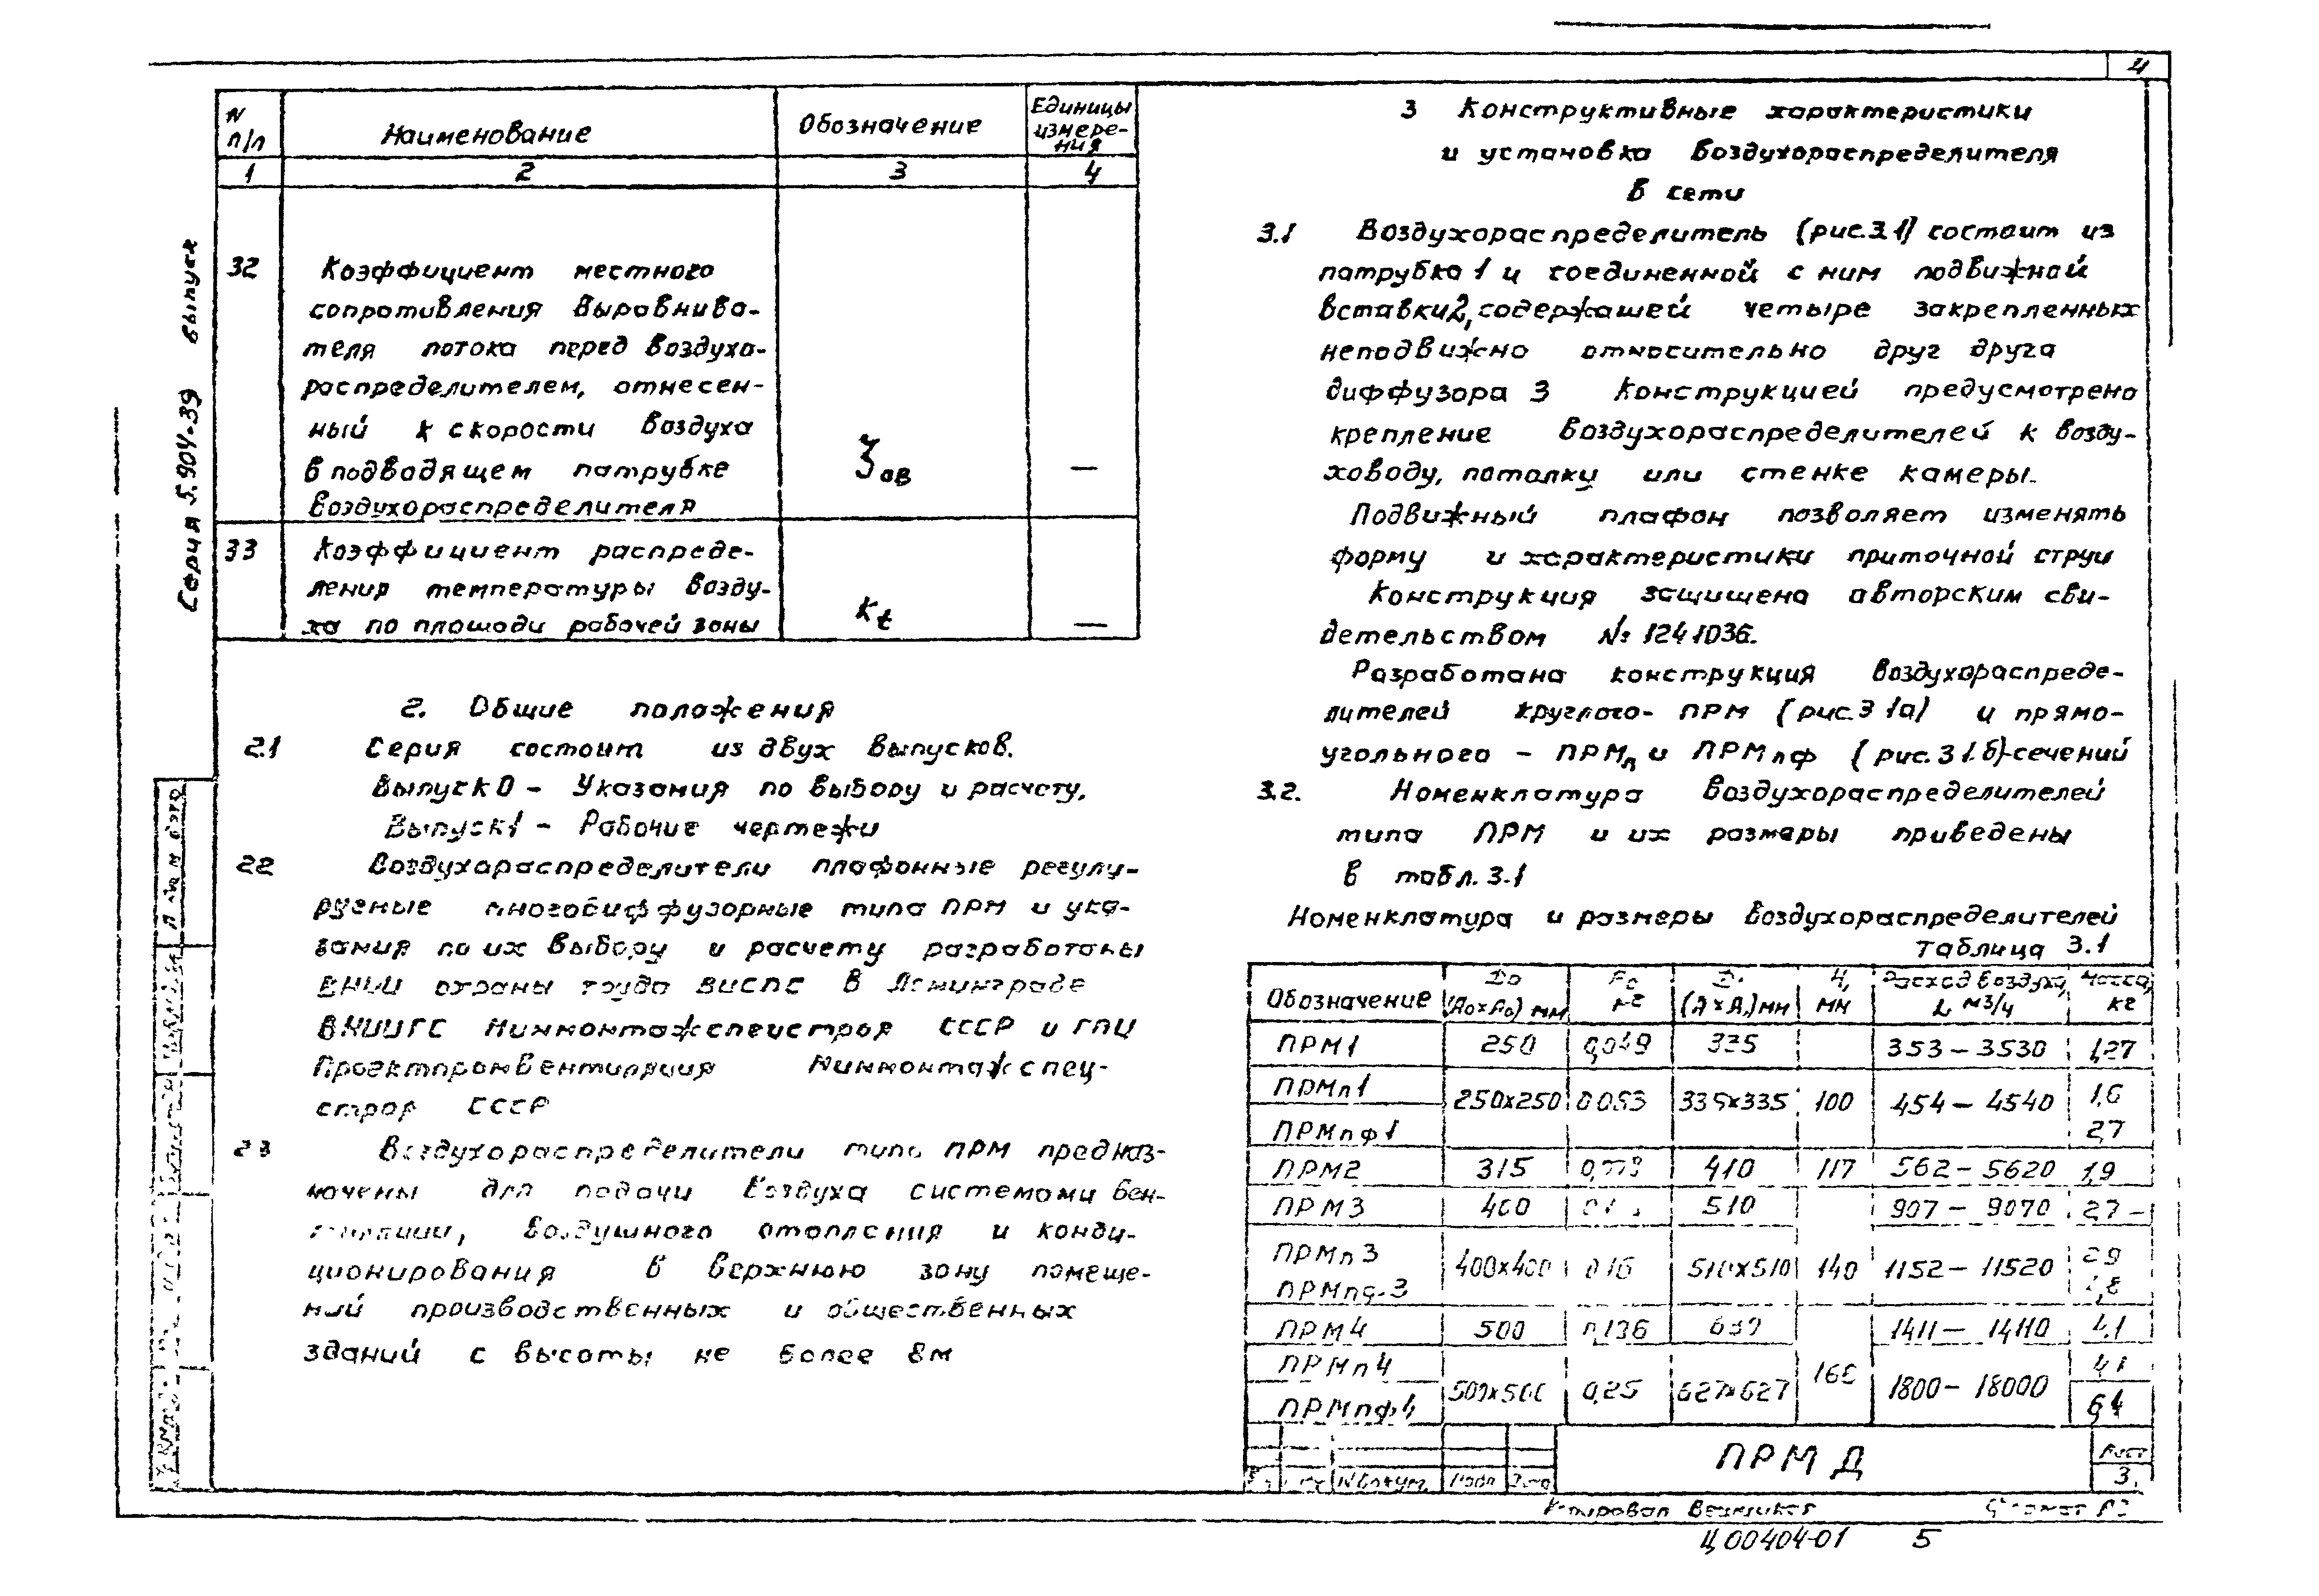 4
Серия 5.904-39 выпуск
N п/п
Наименование
Обозначение
Единицы измере-ния
1 2 3 4
32 Коэффициент местного
сопротивления выравнива-
теля потока перед воздухо-
распределителем, отнесен-
ный к скорости воздуха
в подводящем патрубке
воздухораспределителя
ζов —
33 Коэффициент распреде-
ления температуры возду-
ха по площади рабочей зоны
Kt —
2. Общие положения
2.1 Серия состоит из двух выпусков.
Выпуск 0 – Указания по выбору и расчету,
Выпуск 1 – Рабочие чертежи
2.2 Воздухораспределители плафонные регули-
руемые многодиффузорные типа ПРМ и ука-
зания по их выбору и расчету разработаны
ВНИИ охраны труда ВЦСПС в Ленинграде
ВНИИГС Минмонтажспецстроя СССР и ГПИ
Проектпромвентиляция Минмонтажспец-
строя СССР
2.3 Воздухораспределители типа ПРМ предназ-
начены для подачи воздуха системами вен-
тиляции, воздушного отопления и конди-
ционирования в верхнюю зону помеще-
ний производственных и общественных
зданий с высоты не более 8м
3 Конструктивные характеристики
и установка воздухораспределителя
в сети
3.1 Воздухораспределитель (рис.3.1) состоит из
патрубка 1 и соединенной с ним подвижной
вставки 2, содержащей четыре закрепленных
неподвижно относительно друг друга
диффузора 3 Конструкцией предусмотрено
крепление воздухораспределителей к возду-
ховоду, потолку или стенке камеры.
Подвижный плафон позволяет изменять
форму и характеристики приточной струи
Конструкция защищена авторским сви-
детельством № 1241036.
Разработана конструкция воздухораспреде-
лителей круглого- ПРМ (рис.3 1а) и прямо-
угольного – ПРМп и ПРМпф (рис. 3 1.б)-сечений
3.2. Номенклатура воздухораспределителей
типа ПРМ и их размеры приведены
в табл. 3.1
Номенклатура и размеры воздухораспределителей
Таблица 3.1
Обозначение Do (Ao×Ao) мм Fo (A×A) мм H, мм Расход воздуха, L, м3/ч Масса, кг
ПРМ1 250 0,049 335 353 – 3530 1,27
ПРМп1 250×250 0.063 335×335 100 454 – 4540 1,6
ПРМпф1 2,7
ПРМ2 315 410 117 562 – 5620 1,9
ПРМ3 400 510 907 – 9070 2,7
ПРМп3 400×400 0,16 510×510 140 1152 – 11520 2,9
ПРМпф3
ПРМ4 500 0,196 1411 – 14110 4,1
ПРМп4 500×500 0,25 627×627 1800 – 18000
ПРМпф4 6,4
N докум. Подп
ПРМ Д
Лист
3
Копировал Формат
Ц00404-01 5